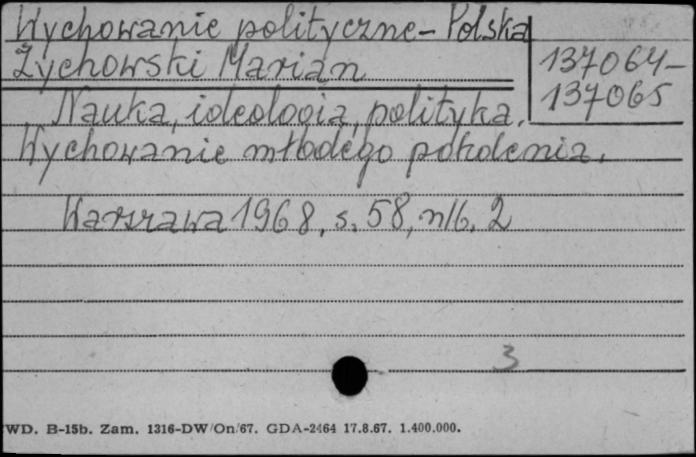 Wychowanie polityczne - Polska
Żychowski Marian
137064-
137065
Nauka, ideologia, polityka.
Wychowanie młodego pokolenia.
Warszawa 1968, s. 58, nlb. 2
3
WD. B-15b. Zam. 1316-DW/On/67. GDA-2464 17.8.67. 1.400.000.